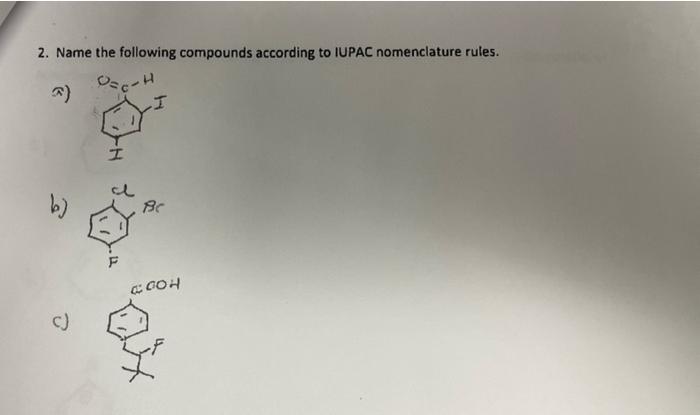 2. Name the following compounds according to IUPAC nomenclature rules.
a)
O=C-H
I
I
b)
Cl
Br
F
c)
COOH
F